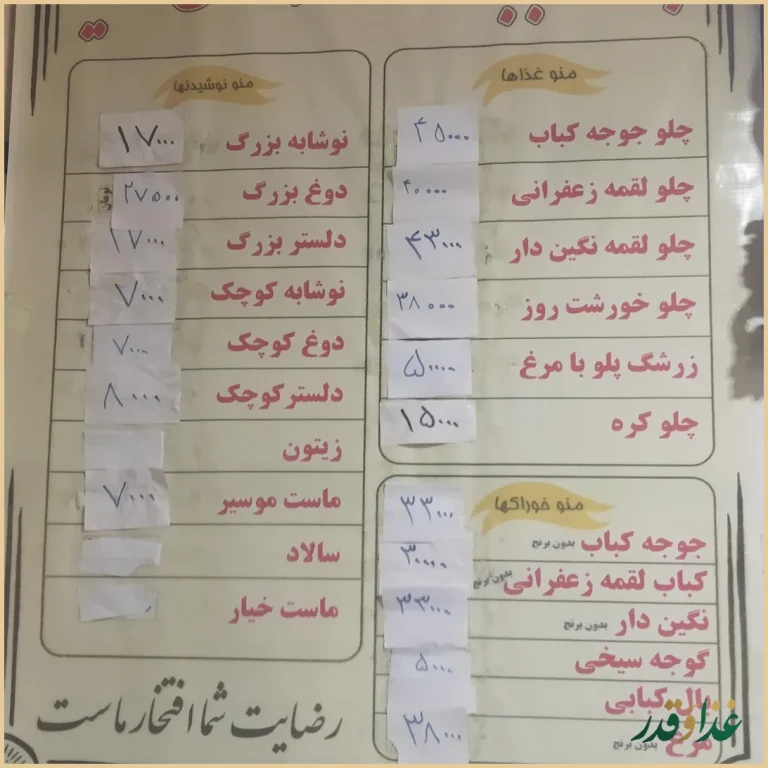 منو غذاها
چلو جوجه کباب ۴۵۰۰۰
چلو لقمه زعفرانی ۴۰۰۰۰
چلو لقمه نگین دار ۴۳۰۰۰
چلو خورشت روز ۳۸۰۰۰
زرشگ پلو با مرغ ۵۰۰۰۰
چلو کره ۱۵۰۰۰
منو خوراکها
۳۳۰۰۰
جوجه کباب بدون برنج
کباب لقمه زعفرانی بدون برنج ۳۰۰۰۰
نگین دار بدون برنج ۳۳۰۰۰
گوجه سیخی
۵۰۰۰
بال کبابی
مرغ بدون برنج ۳۸۰۰۰
منو نوشیدنها
نوشابه بزرگ ۱۷۰۰۰
دوغ بزرگ ۲۷۵۰۰ تومان
دلستر بزرگ ۱۷۰۰۰
نوشابه کوچک ۷۰۰۰
دوغ کوچک ۷۰۰۰
دلستر کوچک ۸۰۰۰
زیتون
ماست موسیر ۷۰۰۰
سالاد
ماست خیار
رضایت شما افتخار ماست
غذا و قدر